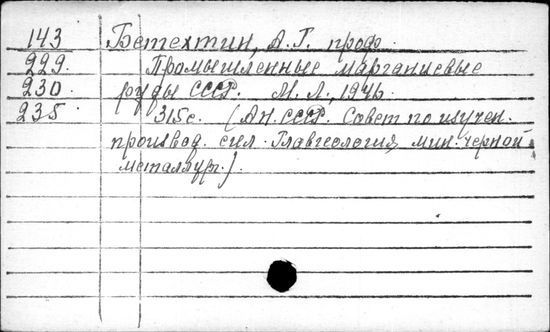 143 Бетехтин, А.Г. проф.
229. Промышленные марганцевые
230 руды СССР. М.Л., 1946.
235 315с. (АН. СССР. Совет по изучен.
производ. сил. Главгеология, мин. черной
металлург.)